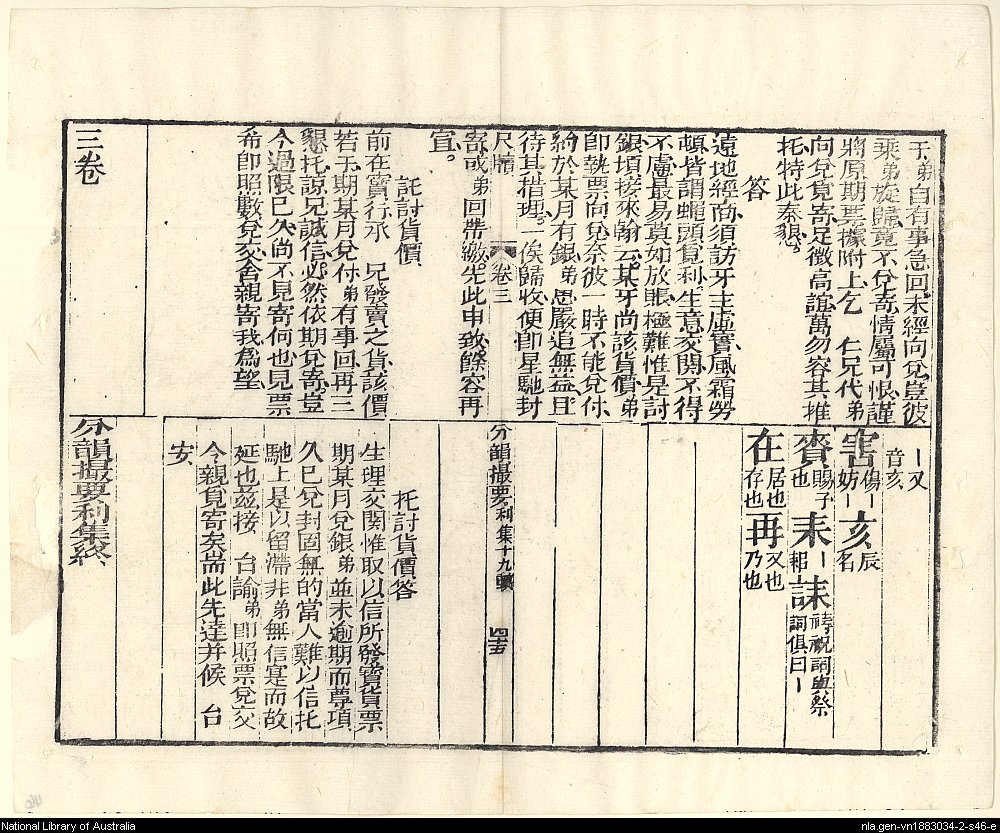 于弟自有事急回未經向兌豈彼
乘弟旋歸竟不兌寄情屬可恨謹
將原期票據附上乞 仁兄代弟
向兌覓寄足徵高誼萬勿容其推
托特此奉懇
答
遠地經商須訪牙主虛實風霜勞
頓皆謂蠅頭覓利生意交關不得
不慮最易莫如放賬極難惟是討
銀頃接來翰云某牙尚該貨價弟
即執票向兌奈彼一時不能兌休
約於某月有銀弟思嚴追無益且
待其措理一俟歸收便即星馳封
尺牘 卷三
寄或弟回帶繳先此申致餘容再
宣
託討貨價
前在寶行承 兄發賣之貨該價
若干期某月兌付弟有事回再三
懇托諒兄誠信必然依期兌寄豈
今過限已久尚不見寄何也見票
希即照數兌交舍親寄我為望
三卷
丨又
音亥
害 傷丨妨丨 亥 辰名
賚 賜予也 耒 丨耜 誄 禱祝詞與祭詞俱曰丨
在 居也存也 再 又也乃也
分韻撮要利集十九 四五
托討貨價答
生理交關惟取以信所發寶貨票
期某月兌銀弟並未逾期而尊項
久已兌封固無的當人難以信托
馳上是以留滯非弟無信寔而故
延也茲接 台諭弟即照票兌交
今親覓寄矣耑此先達并候 台
安
分韻撮要利集終
National Library of Australia
nla.gen-vn1883034-2-s46-e